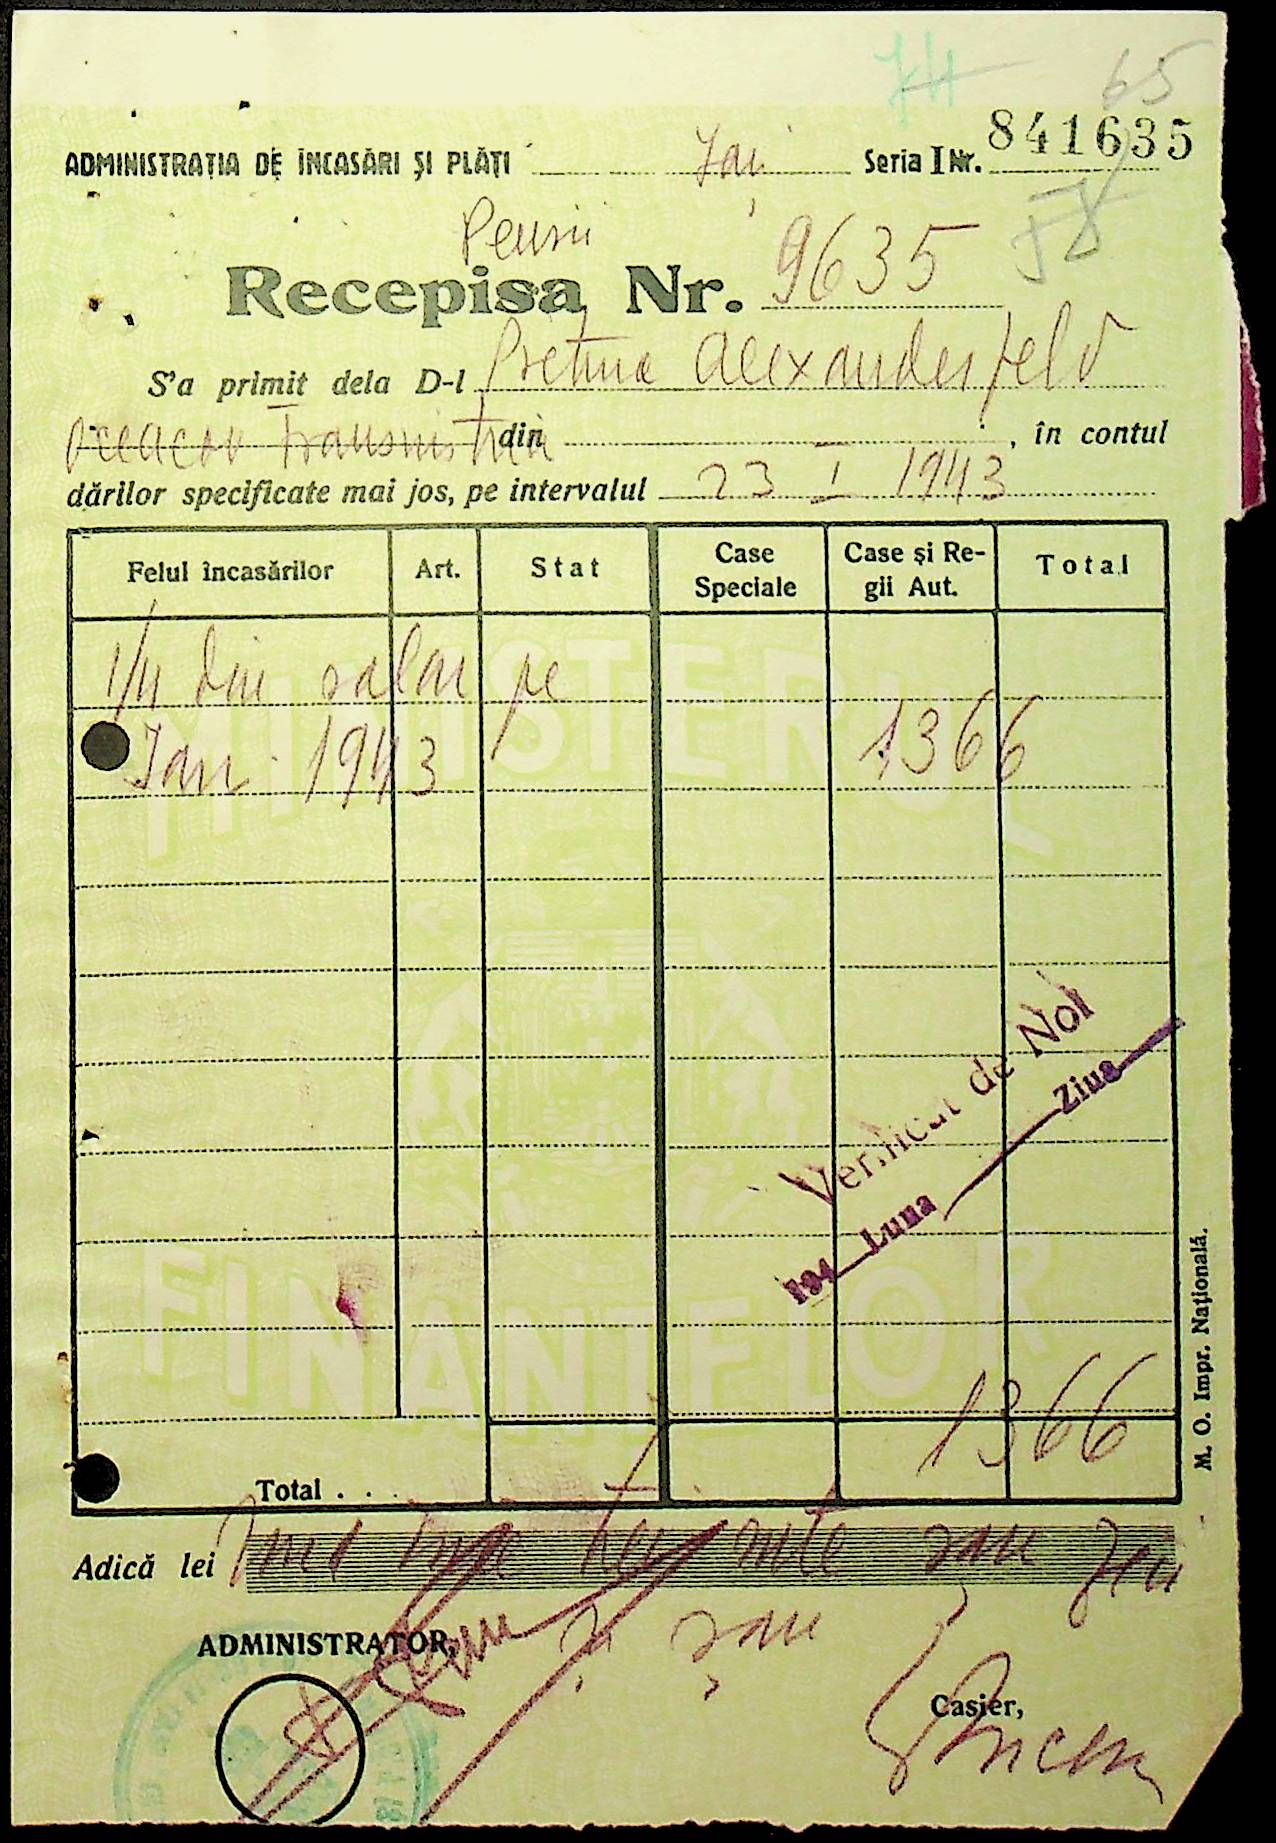 65
ADMINISTRAȚIA DE ÎNCASĂRI ȘI PLĂȚI Iași Seria I Nr. 841635
Pensii
Recepisa Nr. 9635
S'a primit dela D-l Pretura Alexanderfeld
Oceacov Transnistria din , în contul
dărilor specificate mai jos, pe intervalul 23 I 1943
Felul încasărilor Art. Stat Case Speciale Case și Regii Aut. Total
1/4 din salar pe
Ian. 1943 1366
MINISTERUL
FINANȚELOR
Verificat de Noi
194 Luna Ziua
1366
Total . . .
Adică lei una mie trei sute șase zeci
și șase
ADMINISTRATOR,
Casier,
M. O. Impr. Națională.